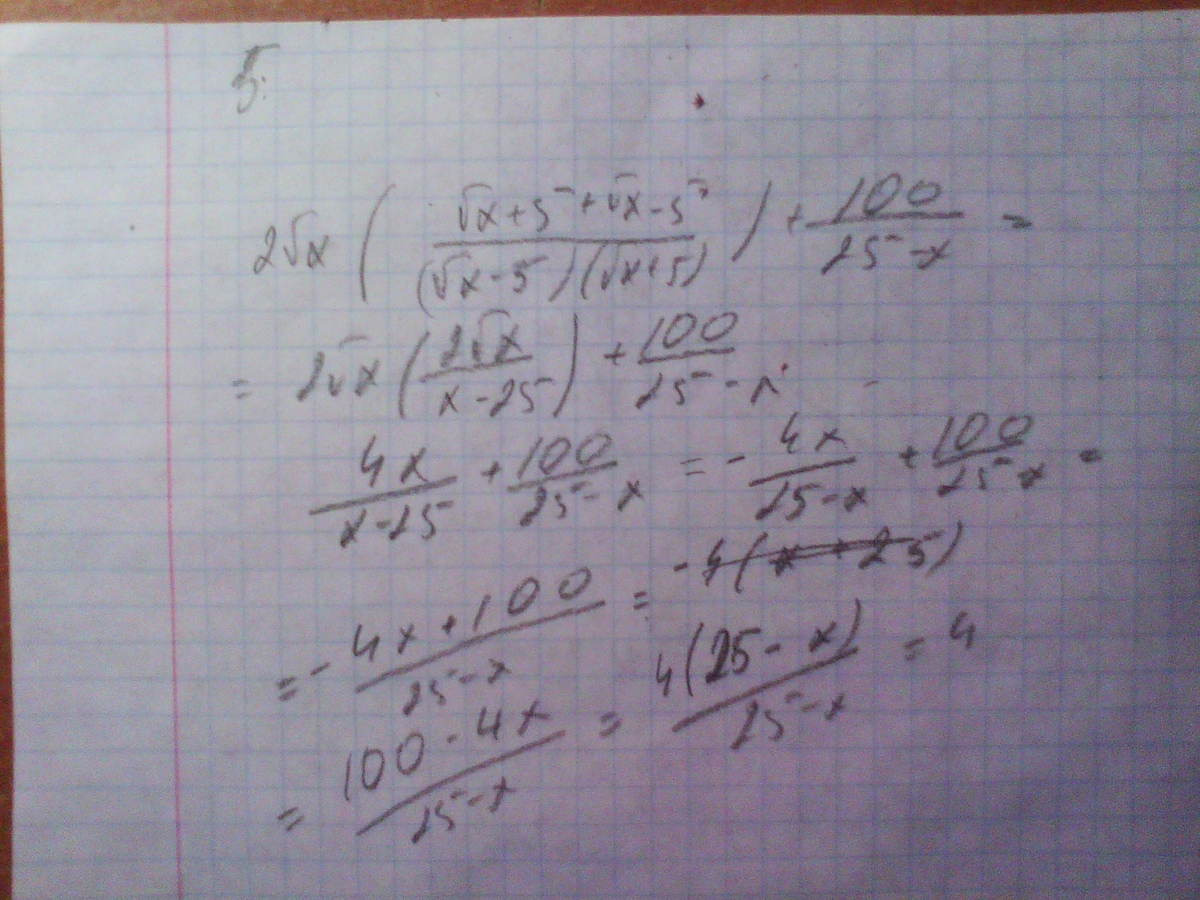 5.
2√x ( (√x+5 + √x-5) / ((√x-5)(√x+5)) ) + 100/(25-x) =
= 2√x ( 2√x / (x-25) ) + 100/(25-x) =
4x/(x-25) + 100/(25-x) = - 4x/(25-x) + 100/(25-x) =
= (-4x+100)/(25-x) =
= (100-4x)/(25-x) = 4(25-x)/(25-x) = 4